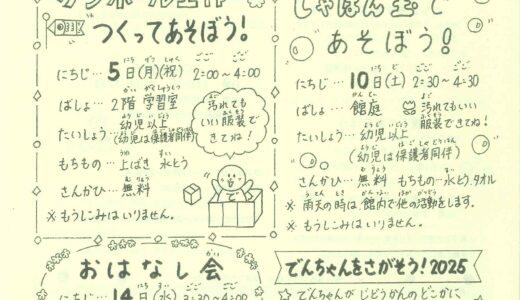 つくってあそぼう!
にちじ…5日(月)(祝) 2:00~4:00
ばしょ…2階 学習室
たいしょう…幼児以上
(幼児は保護者同伴)
もちもの…上ばき 水とう
さんかひ…無料
※ もうしこみはいりません。
汚れても
いい服装で
きてね!
しゃぼん玉で
あそぼう!
にちじ…10日(土) 2:30~4:30
ばしょ…館庭
汚れてもいい
服装できてね!
たいしょう…幼児以上
(幼児は保護者同伴)
さんかひ…無料 もちもの…水とう.タオル
※ 雨天の時は館内で他の活動をします。
※ もうしこみはいりません。
おはなし会
にちじ…14日(水) 3:30~4:00
でんちゃんをさがそう!2025
☆ でんちゃんが じどうかんのどこかに